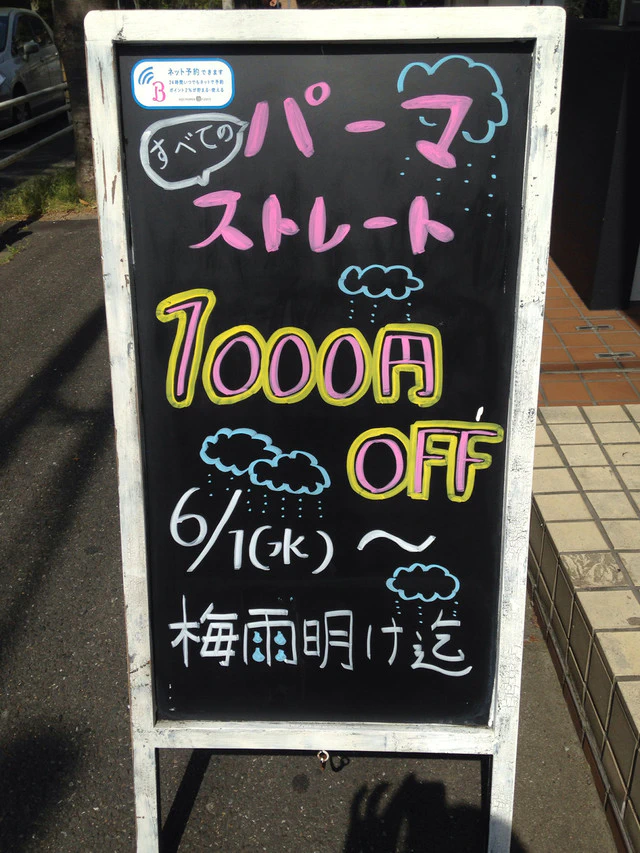 ネット予約できます
24時間いつでもネットで予約
ポイントどちが貯まる・使える
すべての
パーマ
ストレート
1000円
OFF
6/1(水)～
梅雨明け迄